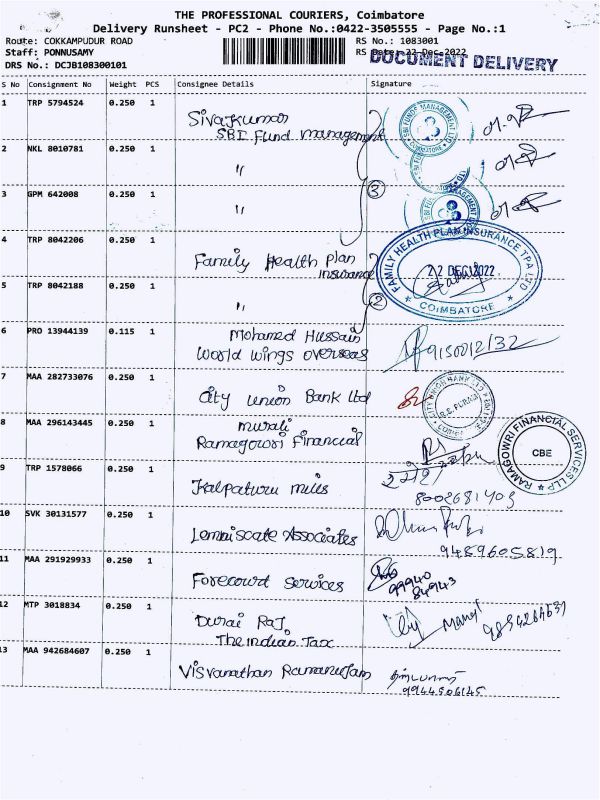 THE PROFESSIONAL COURIERS, Coimbatore
Delivery Runsheet - PC2 - Phone No.:0422-3505555 - Page No.:1
Route: COKKAMPUDUR ROAD
RS No.: 1083001
Staff: PONNUSAMY
RS Date: 22-Dec-2022
DOCUMENT DELIVERY
DRS No.: DCJB108300101
S No Consignment No Weight PCS Consignee Details Signature
1 TRP 5794524 0.250 1 Sivakumar
SBI Fund management
SBI FUNDS MANAGEMENT LTD COIMBATORE
2 NKL 8010781 0.250 1 "
3 GPM 642008 0.250 1 "
3
4 TRP 8042206 0.250 1 Family Health plan
insurance
FAMILY HEALTH PLAN INSURANCE TPA LTD
22 DEC 2022
COIMBATORE
5 TRP 8042188 0.250 1 "
2
6 PRO 13944139 0.115 1 Mohamed Hussain
World wings overseas
7 MAA 282733076 0.250 1 City union Bank Ltd
8 MAA 296143445 0.250 1 murali
Ramagowri Financial
RAMAGOWRI FINANCIAL SERVICES LLP
CBE
9 TRP 1578066 0.250 1 Kalpaturu mills
8002681409
10 SVK 30131577 0.250 1 Lemniscate Associates
9489605819
11 MAA 291929933 0.250 1 Forecourt services
99940
84943
12 MTP 3018834 0.250 1 Durai Raj
The indian Tax
13 MAA 942684607 0.250 1 Visvanathan Ramanujam
9944506145